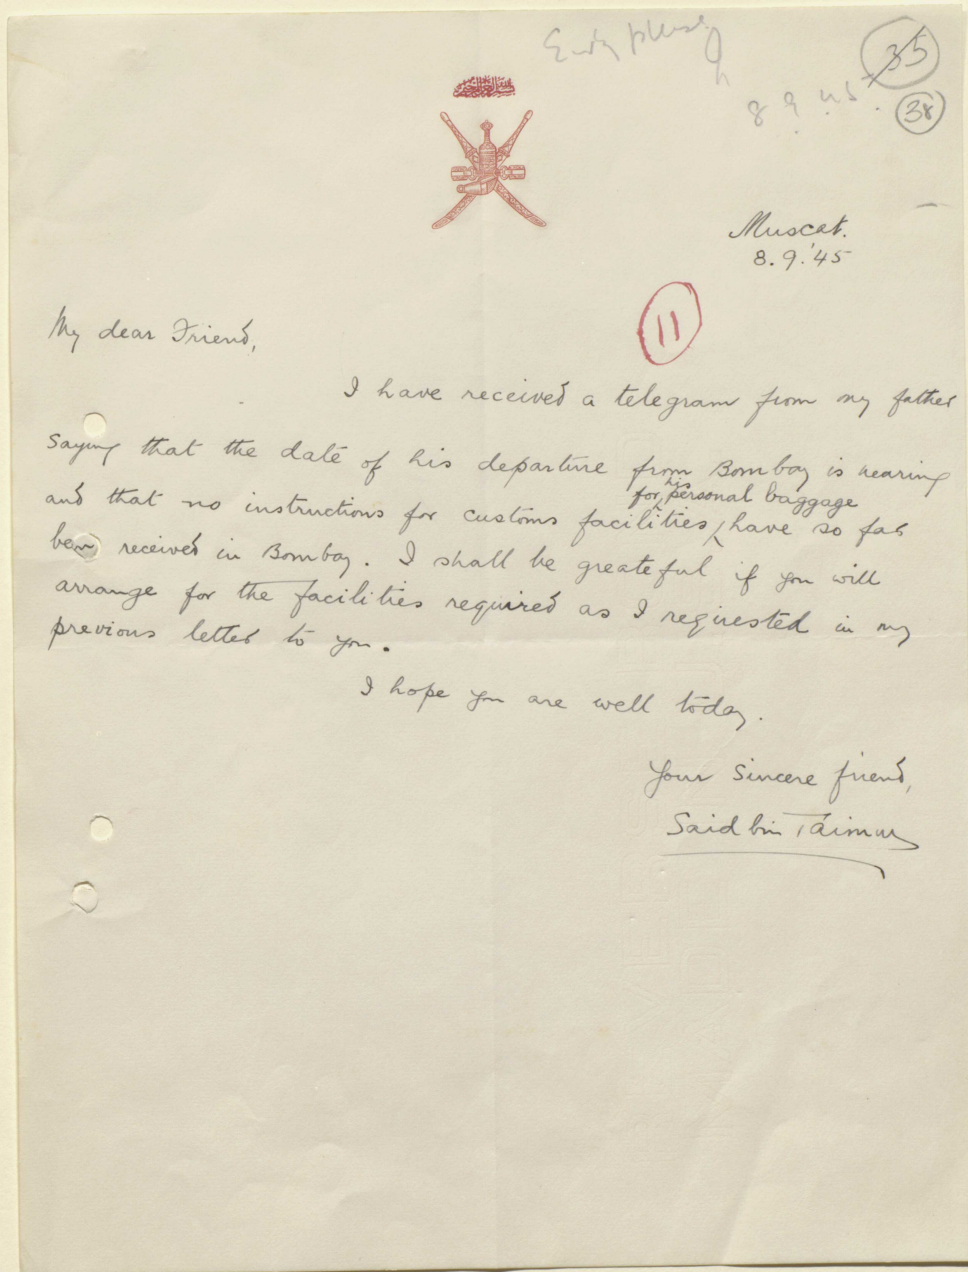 35
38
8. 9. 45.
بسم الله الرحمن الرحيم
Muscat.
8.9.'45
11
My dear Friend,
I have received a telegram from my father
saying that the date of his departure from Bombay is nearing
for his personal baggage
and that no instructions for customs facilities have so far
been received in Bombay. I shall be greateful if you will
arrange for the facilities required as I requested in my
previous letter to you.
I hope you are well today.
Your sincere friend,
Said bin Taimur